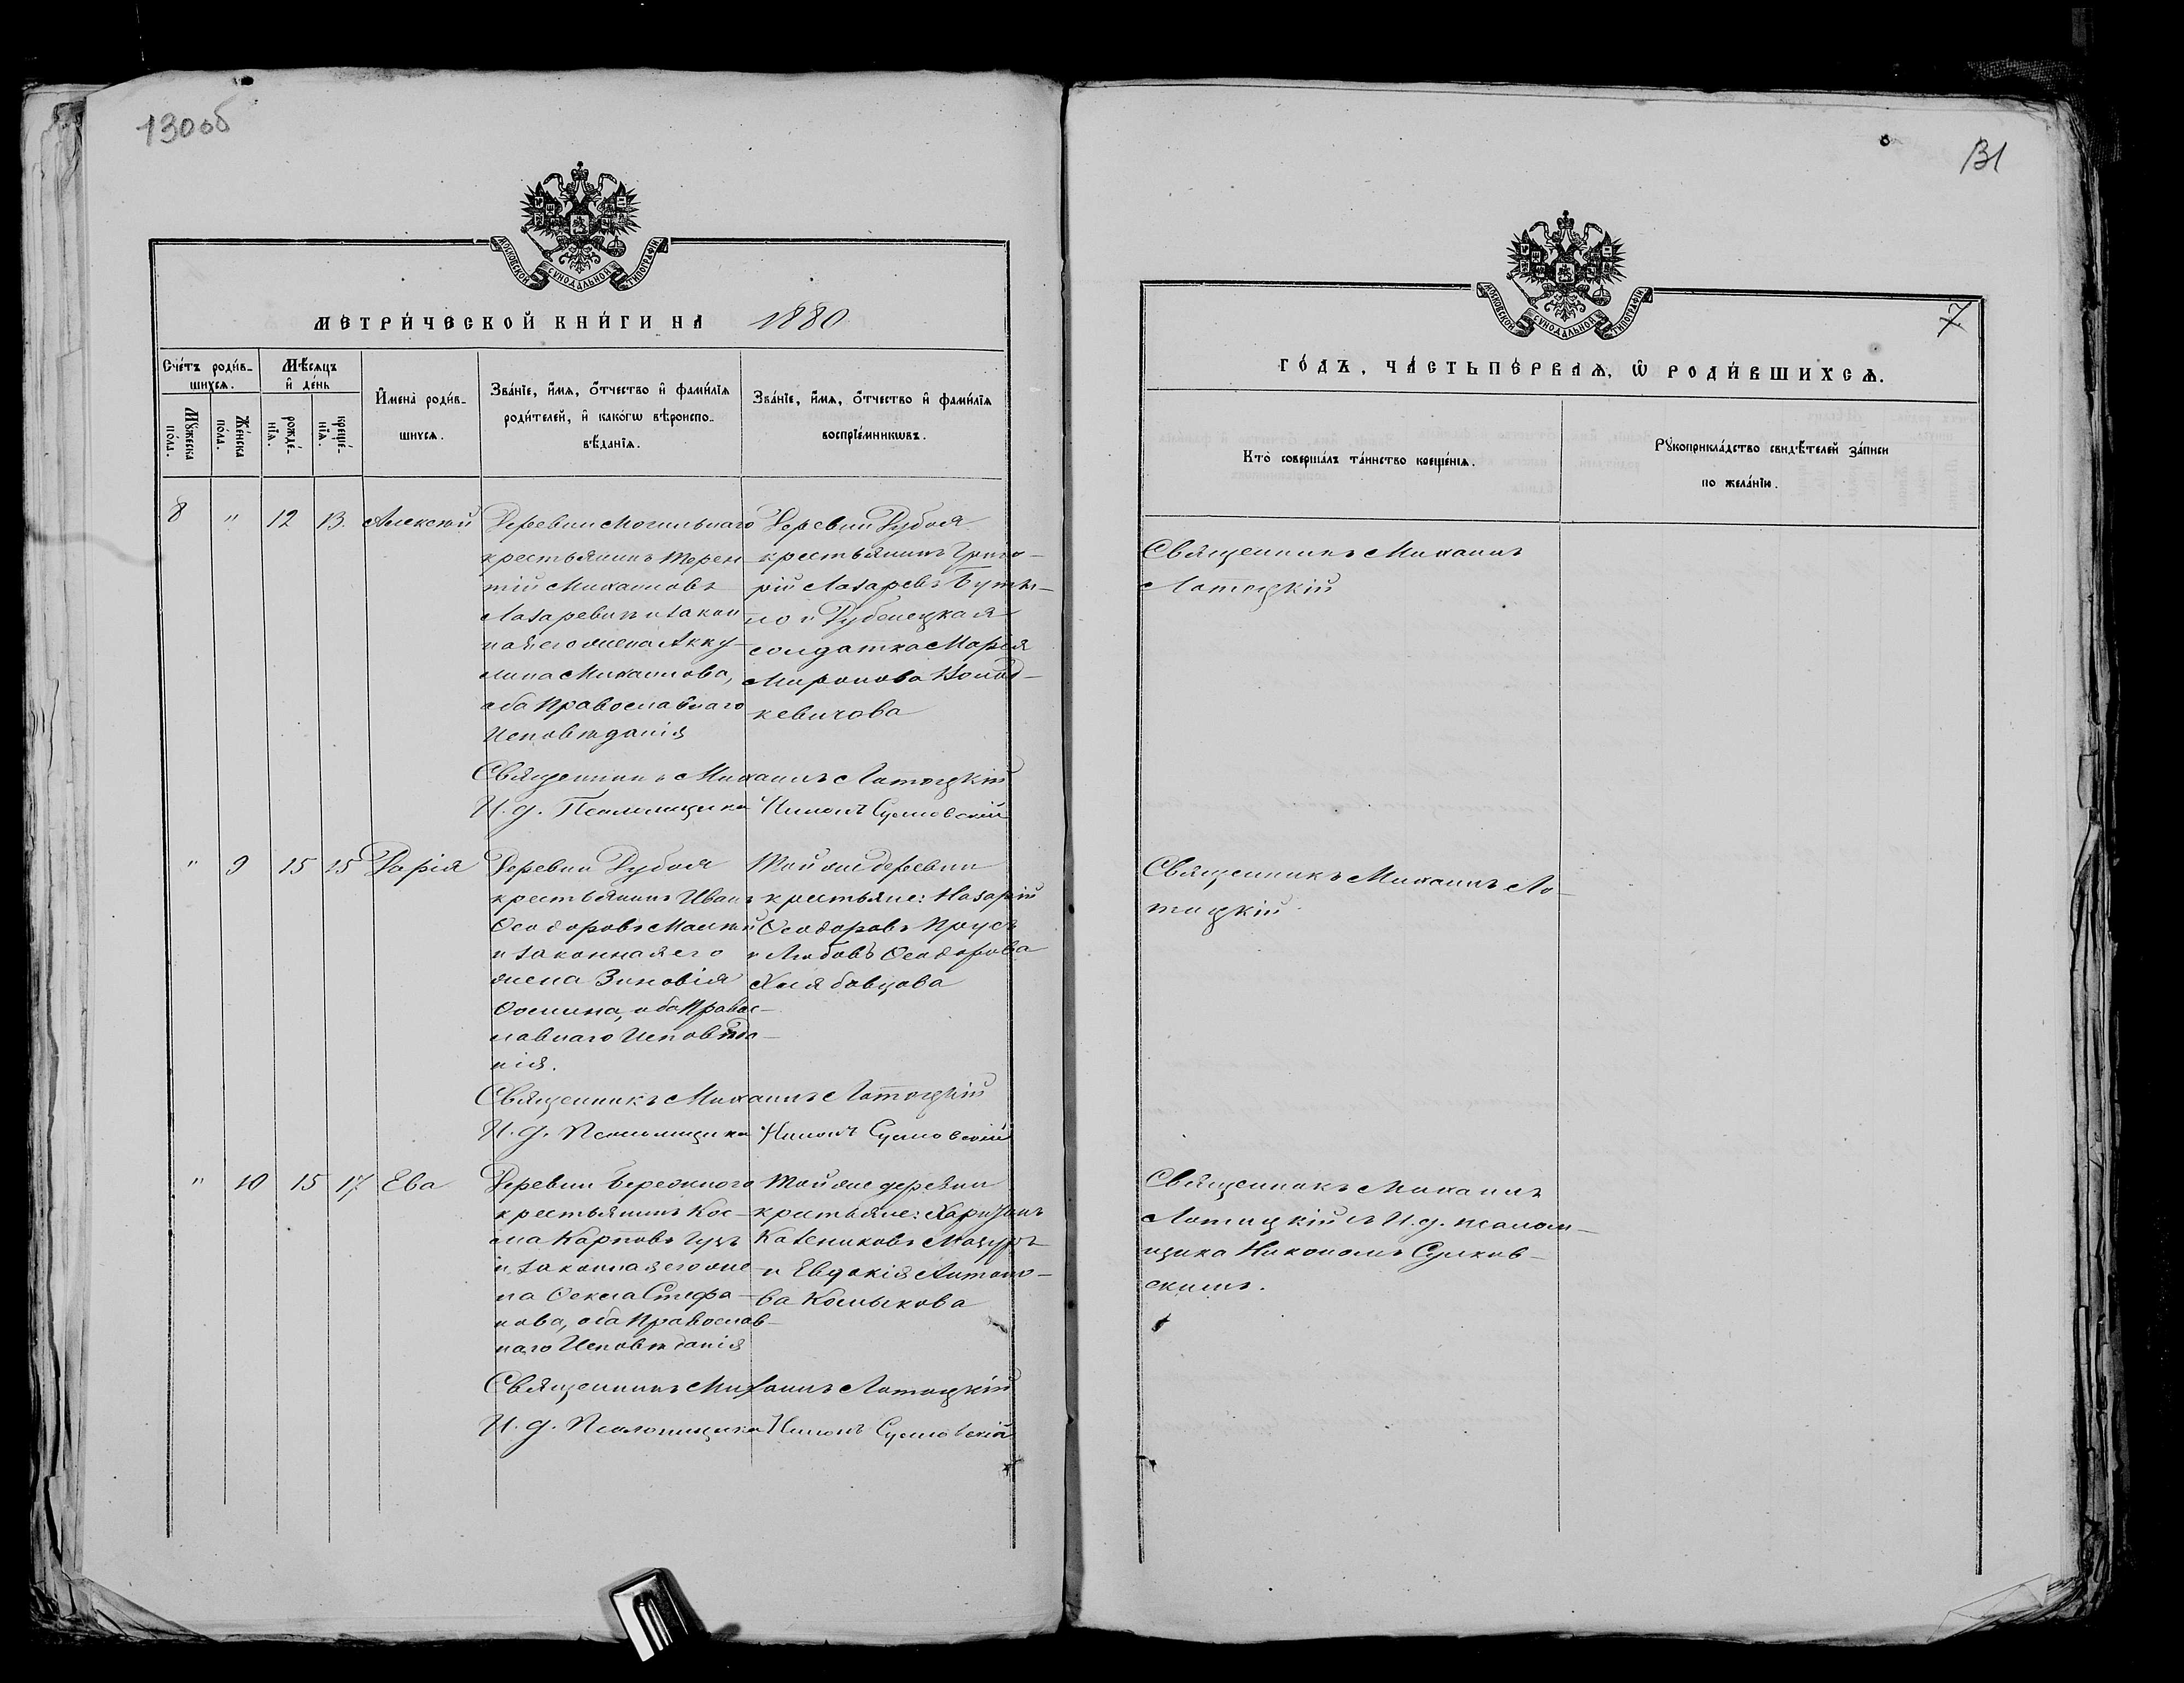 130 об
131
МОСКОВСКОЙ СѴНОДАЛЬНОЙ ТИПОГРАФІИ
МЕТРИ́ЧЕСКОЙ КНИ́ГИ НА 1880
Сче́тъ роди́в-
шихсѧ.
Мѣ́сѧцъ
и҆ де́нь
Мꙋ́жеска
по́ла.
Же́нска
по́ла.
рожде́-
нїѧ.
креще́-
нїѧ.
И҆мена̀ роди́в-
шихсѧ.
Зва́нїе, и҆́мѧ, ѻ҆́тчество и҆ фами́лїѧ
роди́телей, и҆ како́гѡ вѣроиспо-
вѣ́данїѧ.
Зва́нїе, и҆́мѧ, ѻ҆́тчество и҆ фами́лїѧ
воспрїе́мникѡвъ.
8 " 12 13. Алексѣй
Деревни Могильнаго
крестьянинъ Терен
тій Михаиловъ
Лазаревичъ и закон
ная его жена Акку-
лина Михаилова,
оба Православнаго
Исповѣданія
Деревни Дубоя
крестьянинъ Григо-
рій Лазаревъ
и Дубенецкая
солдатка Марія
Миронова
кевичова
Священникъ Михаилъ Лотоцкій
И. д. Псаломщика Никонъ Сулковскій
" 9 15 15 Дарія
Деревни Дубоя
крестьянинъ Иванъ
Ѳеодоровъ
и законная его
жена Зиновія
Ѳомина, оба Правос-
лавнаго Исповѣда-
нія.
Той же деревни
крестьяне: Назарій
Ѳеодоровъ Прусъ
и Любовь Ѳеодорова
Священникъ Михаилъ Лотоцкій
И. д. Псаломщика Никонъ Сулковскій
" 10 15 17 Ева
Деревни Бережного
крестьянинъ Кос-
ма Карповъ Гуцъ
и законная его же-
на Ѳекла Стефа-
нова, оба Православ-
наго Исповѣданія
Той же деревни
крестьяне: Харитонъ
Калениковъ Мазуръ
и Евдокія Антоно-
ва Колыкова
Священникъ Михаилъ Лотоцкій
И. д. Псаломщика Никонъ Сулковскій
МОСКОВСКОЙ СѴНОДАЛЬНОЙ ТИПОГРАФІИ
7
ГО́ДЪ, ЧА́СТЬ ПЕ́РВАѦ, Ѡ҆ РОДИ́ВШИХСѦ.
Кто̀ соверша́лъ та́инство креще́нїѧ.
Рꙋкоприкла́дство свидѣ́телей за́писи
по жела́нїю.
Священникъ Михаилъ
Лотоцкій
Священникъ Михаилъ Ло-
тоцкій
Священникъ Михаилъ
Лотоцкій съ И. д. псалом-
щика Никономъ Сулков-
скимъ.